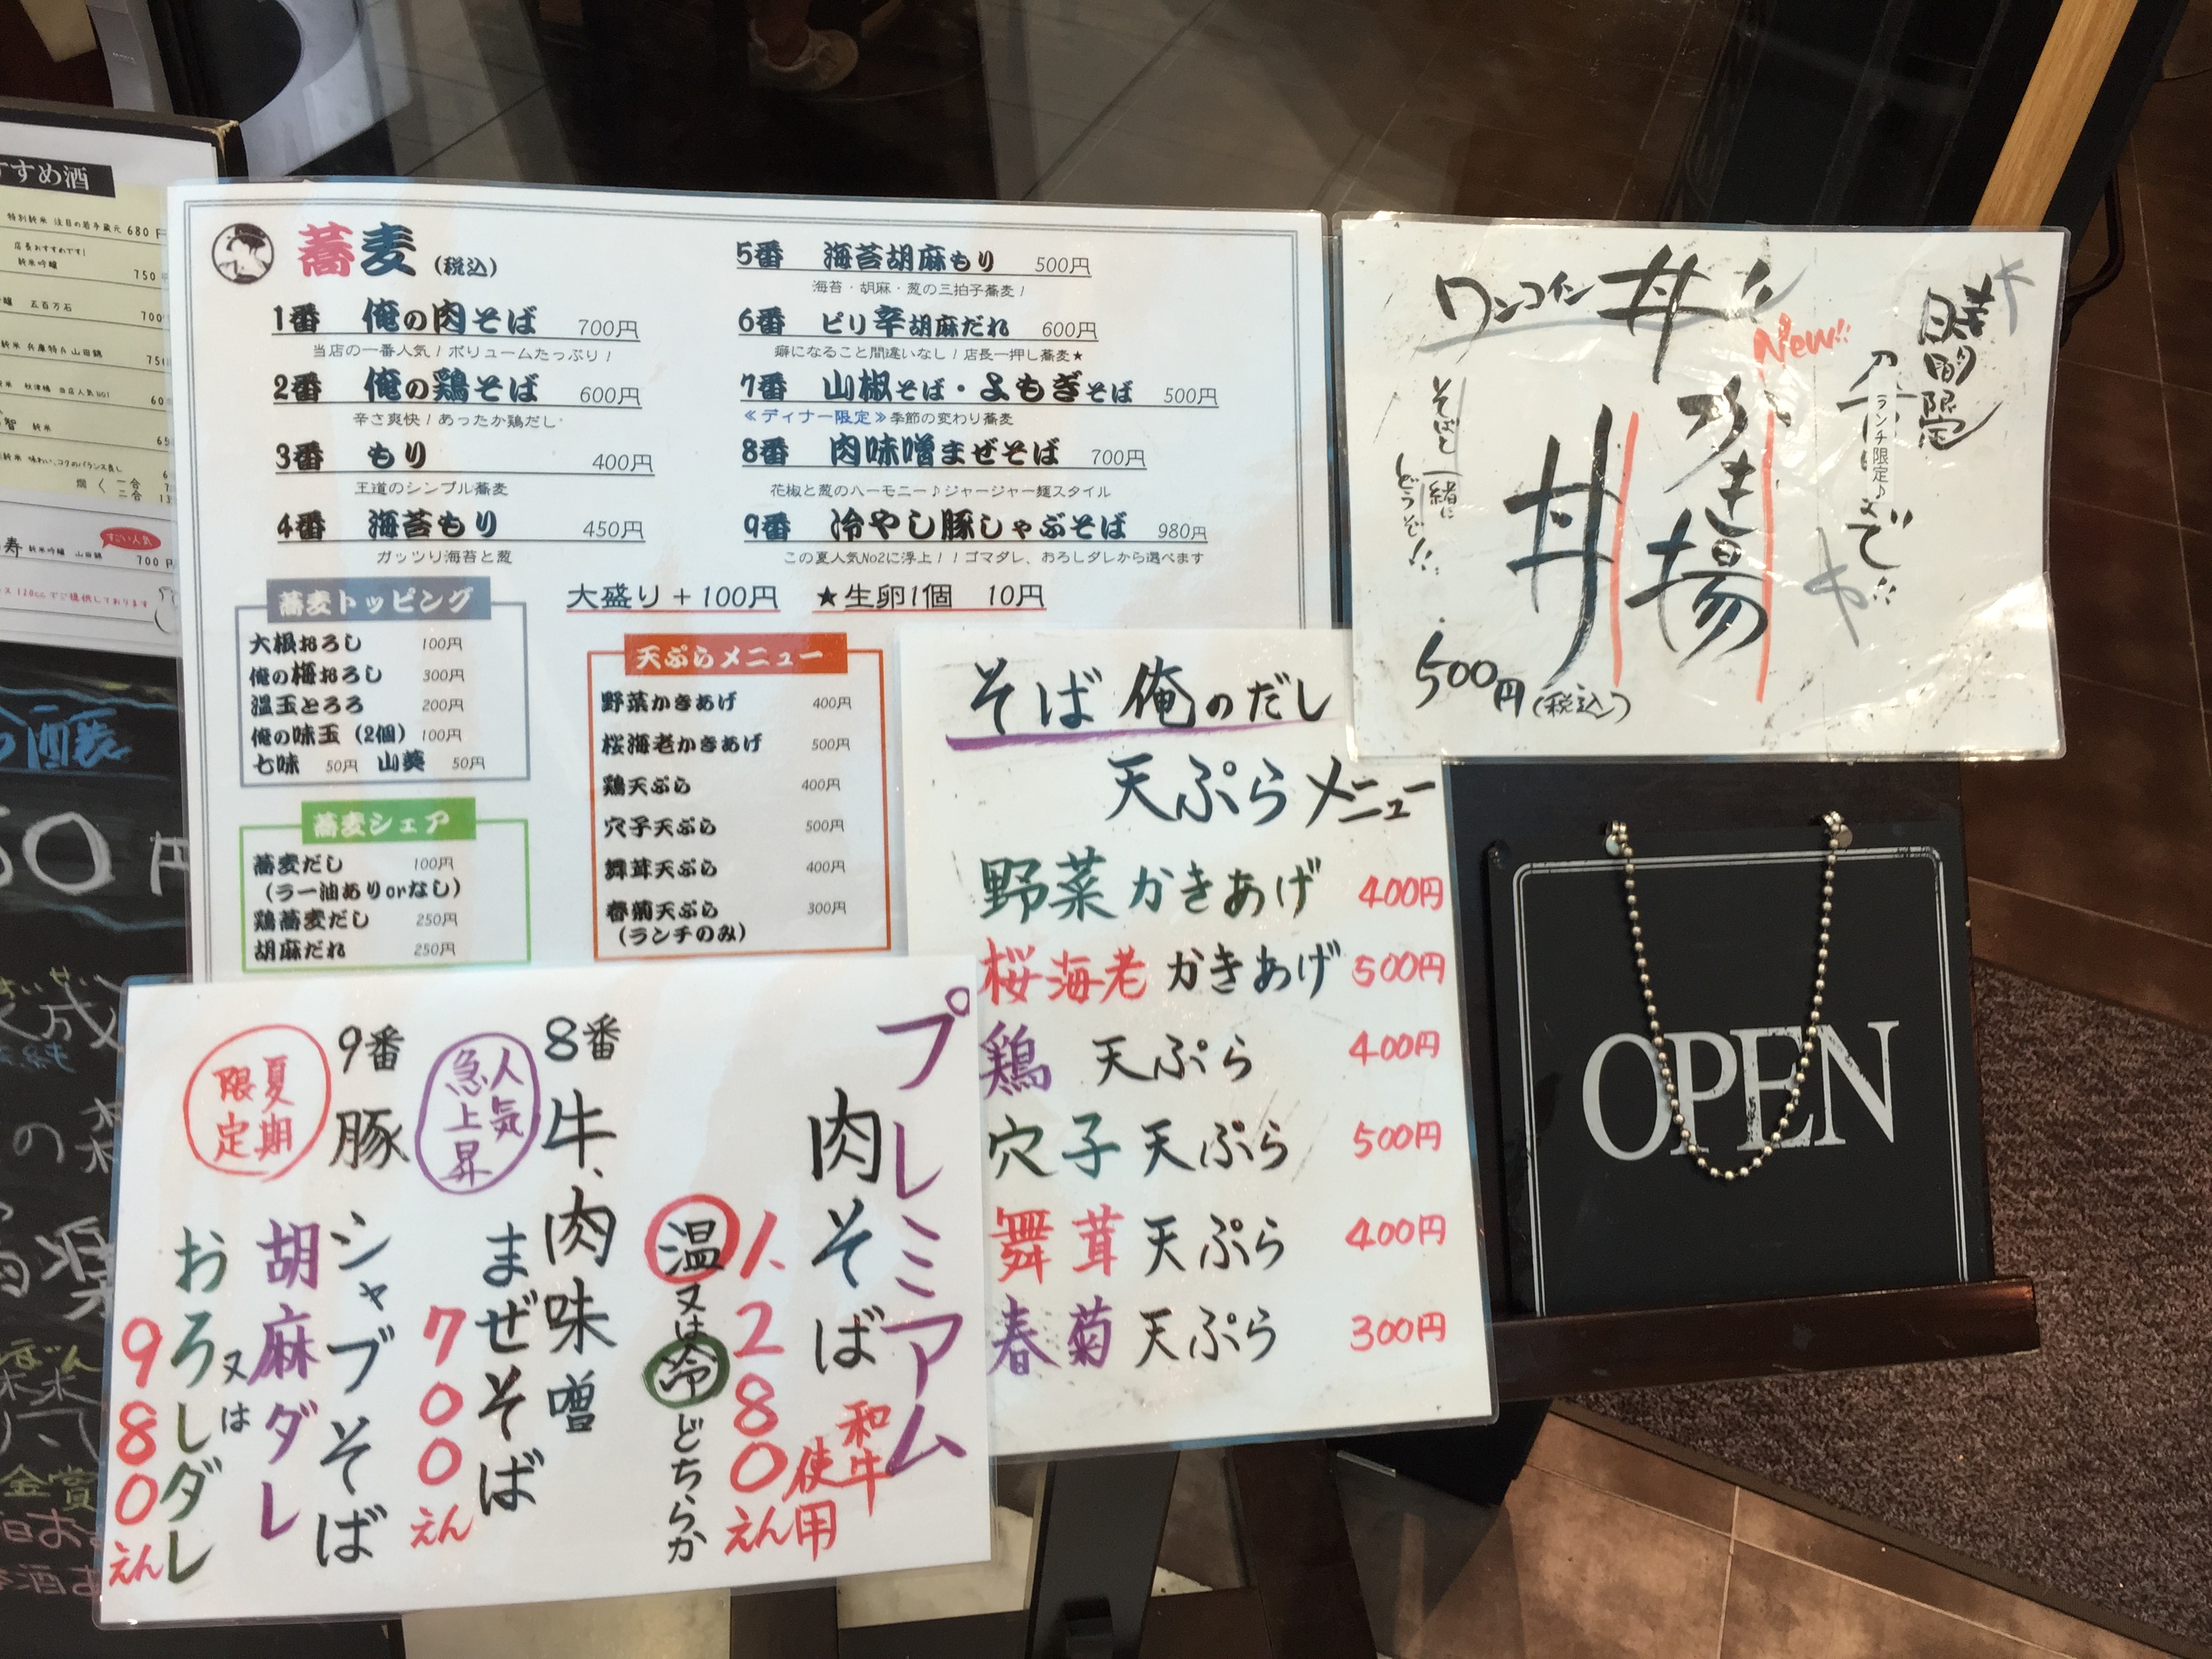 すすめ酒
特別純米 注目の若手蔵元 680円
店長おすすめです!
純米吟醸 750
五百万石
700
兵庫特A山田錦
750
当店人気NO1
60
純米 65
味わい、コクのバランス良し
燗く 一合
二合
すごい人気
寿 純米吟醸 山田錦 700円
120ccでご提供しております
蕎麦 (税込)
1番 俺の肉そば 700円
当店の一番人気!ボリュームたっぷり!
2番 俺の鶏そば 600円
辛さ爽快!あったか鶏だし
3番 もり 400円
王道のシンプル蕎麦
4番 海苔もり 450円
ガッツり海苔と葱
5番 海苔胡麻もり 500円
海苔・胡麻・葱の三拍子蕎麦!
6番 ピリ辛胡麻だれ 600円
癖になること間違いなし!店長一押し蕎麦★
7番 山椒そば・よもぎそば 500円
≪ディナー限定≫季節の変わり蕎麦
8番 肉味噌まぜそば 700円
花椒と葱のハーモニー♪ジャージャー麺スタイル
9番 冷やし豚しゃぶそば 980円
この夏人気No2に浮上!!ゴマダレ、おろしダレから選べます
大盛り+100円 ★生卵1個 10円
蕎麦トッピング
大根おろし 100円
俺の梅おろし 300円
温玉とろろ 200円
俺の味玉(2個) 100円
七味 50円 山葵 50円
蕎麦シェア
蕎麦だし 100円
(ラー油ありorなし)
鶏蕎麦だし 250円
胡麻だれ 250円
天ぷらメニュー
野菜かきあげ 400円
桜海老かきあげ 500円
鶏天ぷら 400円
穴子天ぷら 500円
舞茸天ぷら 400円
春菊天ぷら 300円
(ランチのみ)
時間限定
ランチ限定♪
まで!!
ワンコイン丼!!
New!!
つき場
丼
そばと
一緒に
どうぞ!!
500円(税込)
そば俺のだし
天ぷらメニュー
野菜かきあげ 400円
桜海老かきあげ 500円
鶏 天ぷら 400円
穴子天ぷら 500円
舞茸天ぷら 400円
春菊天ぷら 300円
プレミアム
肉そば
和牛
使用
1.280えん
温又は冷どちらか
8番 牛、肉味噌
まぜそば
人気
急上昇
700えん
9番 豚シャブそば
夏期
限定
胡麻ダレ
又は
おろしダレ
980えん
OPEN
50円
金賞